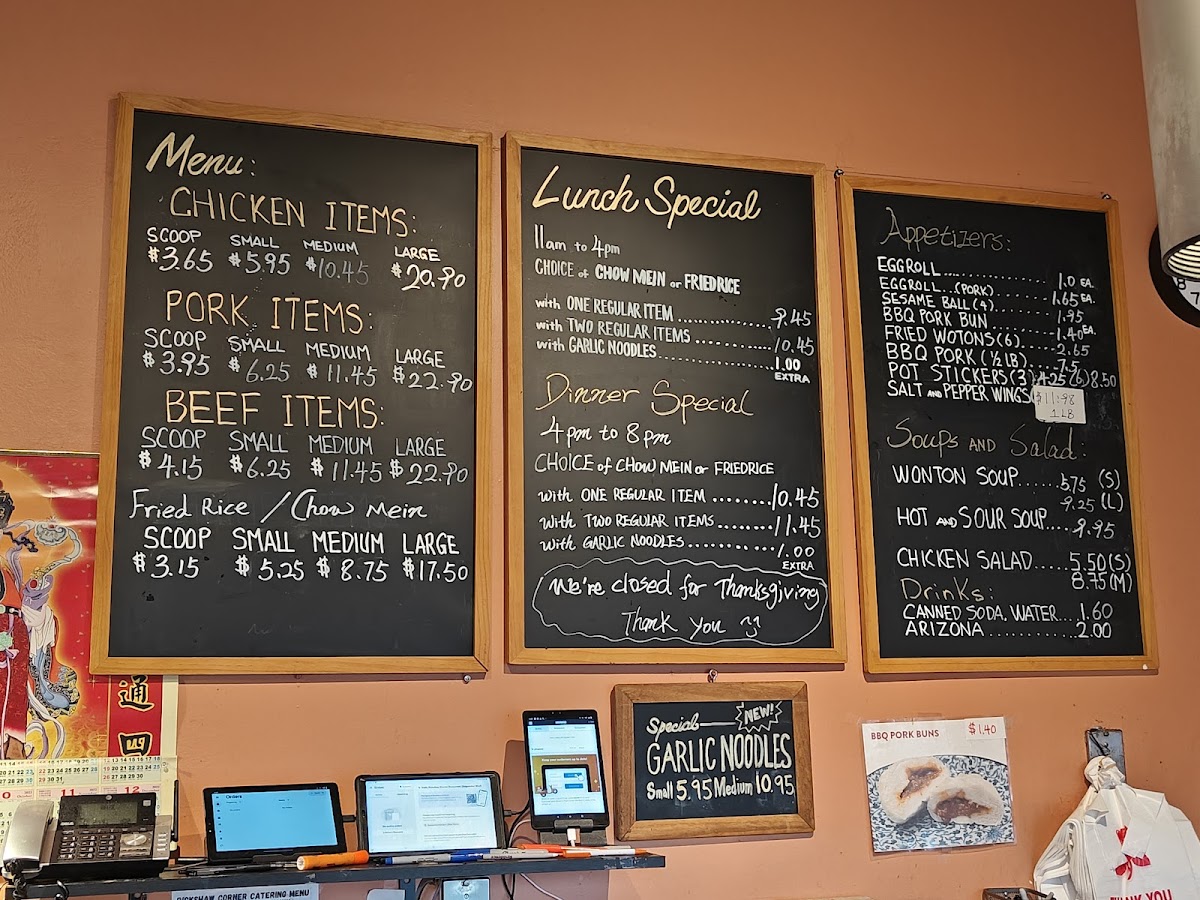 Menu:
CHICKEN ITEMS:
SCOOP SMALL MEDIUM LARGE
$3.65 $5.95 $10.45 $20.90
PORK ITEMS:
SCOOP SMALL MEDIUM LARGE
$3.95 $6.25 $11.45 $22.90
BEEF ITEMS:
SCOOP SMALL MEDIUM LARGE
$4.15 $6.25 $11.45 $22.90
Fried Rice / Chow Mein
SCOOP SMALL MEDIUM LARGE
$3.15 $5.25 $8.75 $17.50
Lunch Special
11am to 4pm
CHOICE of CHOW MEIN or FRIEDRICE
with ONE REGULAR ITEM..............9.45
with TWO REGULAR ITEMS............10.45
with GARLIC NOODLES................1.00
EXTRA
Dinner Special
4pm to 8pm
CHOICE of CHOW MEIN or FRIEDRICE
with ONE REGULAR ITEM........10.45
with TWO REGULAR ITEMS........11.45
with GARLIC NOODLES............1.00
EXTRA
We're closed for Thanksgiving
Thank you
Appetizers:
EGGROLL..................1.0 EA.
EGGROLL..(PORK)..........1.65 EA.
SESAME BALL (4)..........1.95
BBQ PORK BUN.............1.40 EA.
FRIED WOTONS (6).....2.65
BBQ PORK (½ LB)....7.5
POT STICKERS (3) 4.25 (6) 8.50
SALT AND PEPPER WINGS $11.98
1 LB
Soups AND Salad:
WONTON SOUP......5.75 (S)
9.25 (L)
HOT AND SOUR SOUP....9.95
CHICKEN SALAD.....5.50 (S)
8.75 (M)
Drinks:
CANNED SODA, WATER...1.60
ARIZONA............2.00
Special NEW!
GARLIC NOODLES
Small 5.95 Medium 10.95
BBQ PORK BUNS $1.40
Orders
RICKSHAW CORNER CATERING MENU
THANK YOU
通
四
10 11 12